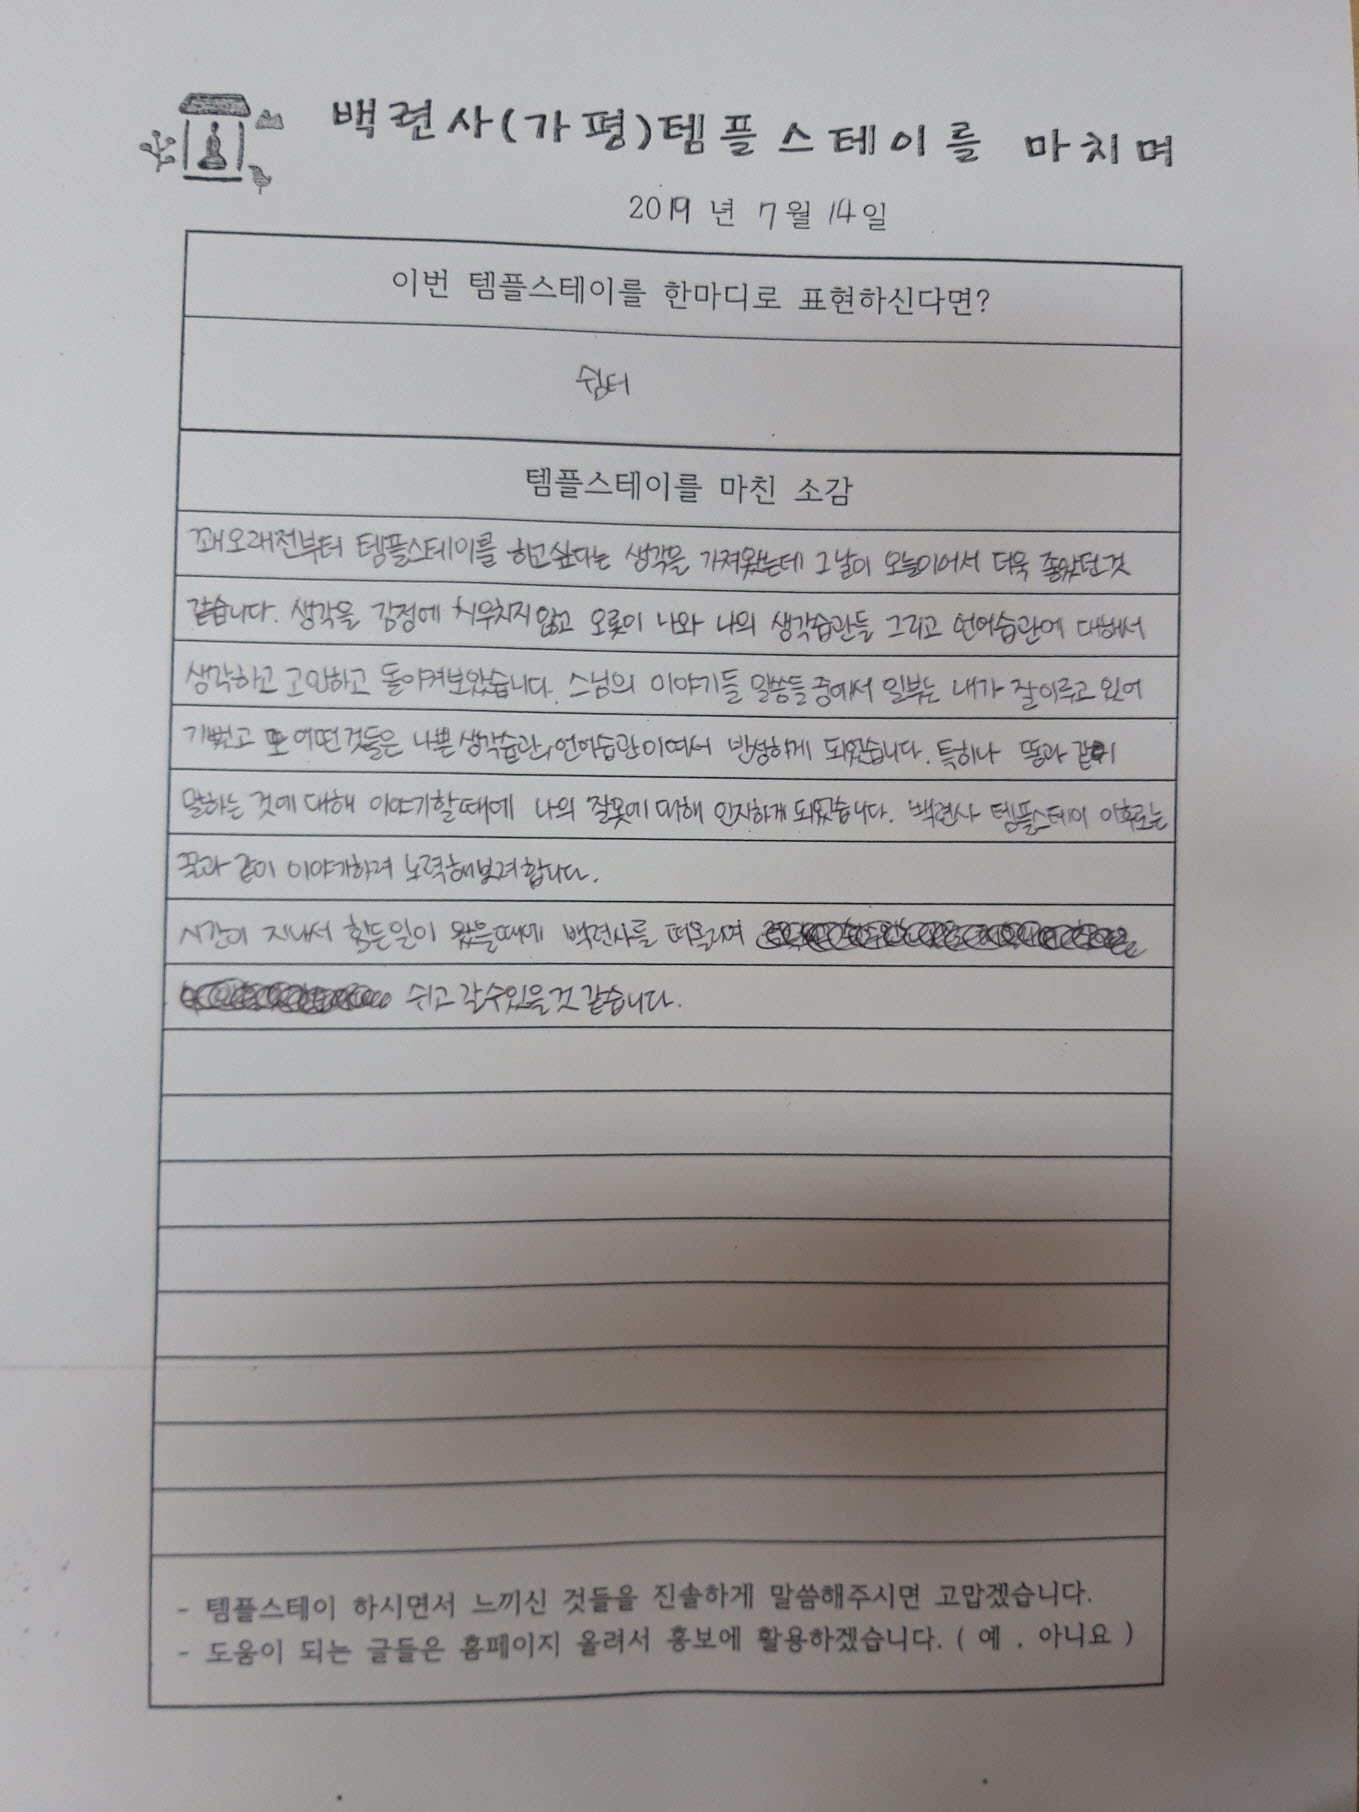 백련사(가평)템플스테이를 마치며
2019년 7월 14일
이번 템플스테이를 한마디로 표현하신다면?
쉼터
템플스테이를 마친 소감
꽤오래전부터 템플스테이를 하고싶다는 생각을 가져왔는데 그날이 오늘이어서 더욱 좋았던것
같습니다. 생각을 감정에 치우치지않고 오롯이 나와 나의 생각습관들 그리고 언어습관에 대해서
생각하고 고민하고 돌이켜보았습니다. 스님의 이야기들 말씀들중에서 일부는 내가 잘이루고 있어
기뻤고 또 어떤것들은 나쁜생각습관, 언어습관이여서 반성하게 되었습니다. 특히나 똥과 같이
말하는 것에 대해 이야기할때에 나의 잘못에 대해 인지하게되었습니다. 백련사 템플스테이 이후로는
꽃과 같이 이야기하려 노력해보려합니다.
시간이 지나서 힘든일이 왔을때에 백련사를 떠올리며
쉬고 갈수있을것 같습니다.
- 템플스테이 하시면서 느끼신 것들을 진솔하게 말씀해주시면 고맙겠습니다.
- 도움이 되는 글들은 홈페이지 올려서 홍보에 활용하겠습니다. ( 예 , 아니요 )